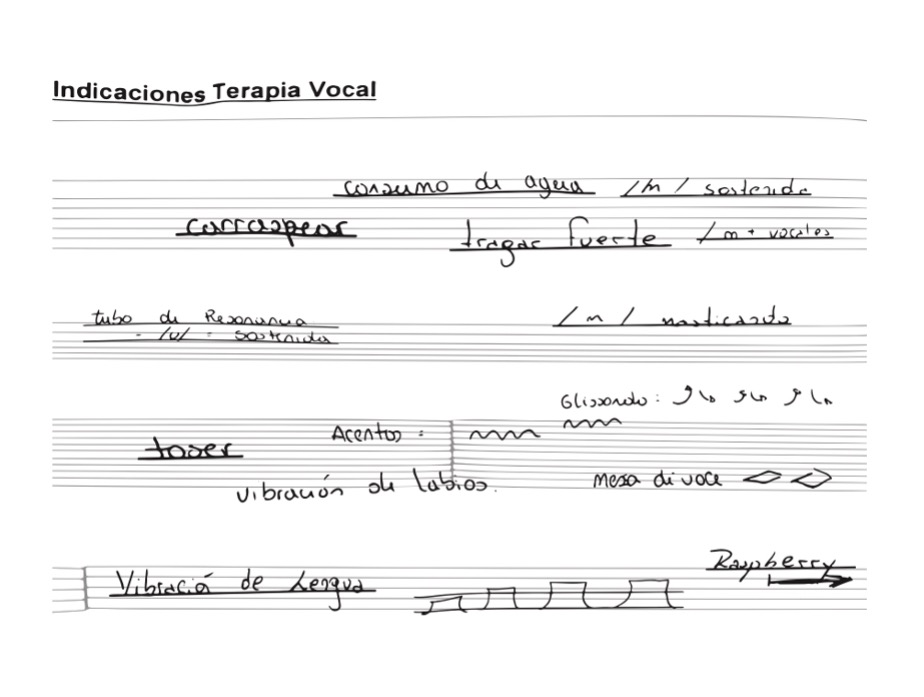 Indicaciones Terapia Vocal
consumo de agua /m/ sostenida
carraspear tragar fuerte /m + vocales
tubo de Resonancia
- /u/ = sostenida
/m/ masticada
Glissando:
Acentos:
toser
vibración de labios.
mesa di voce
Raspberry
Vibració de Lengua